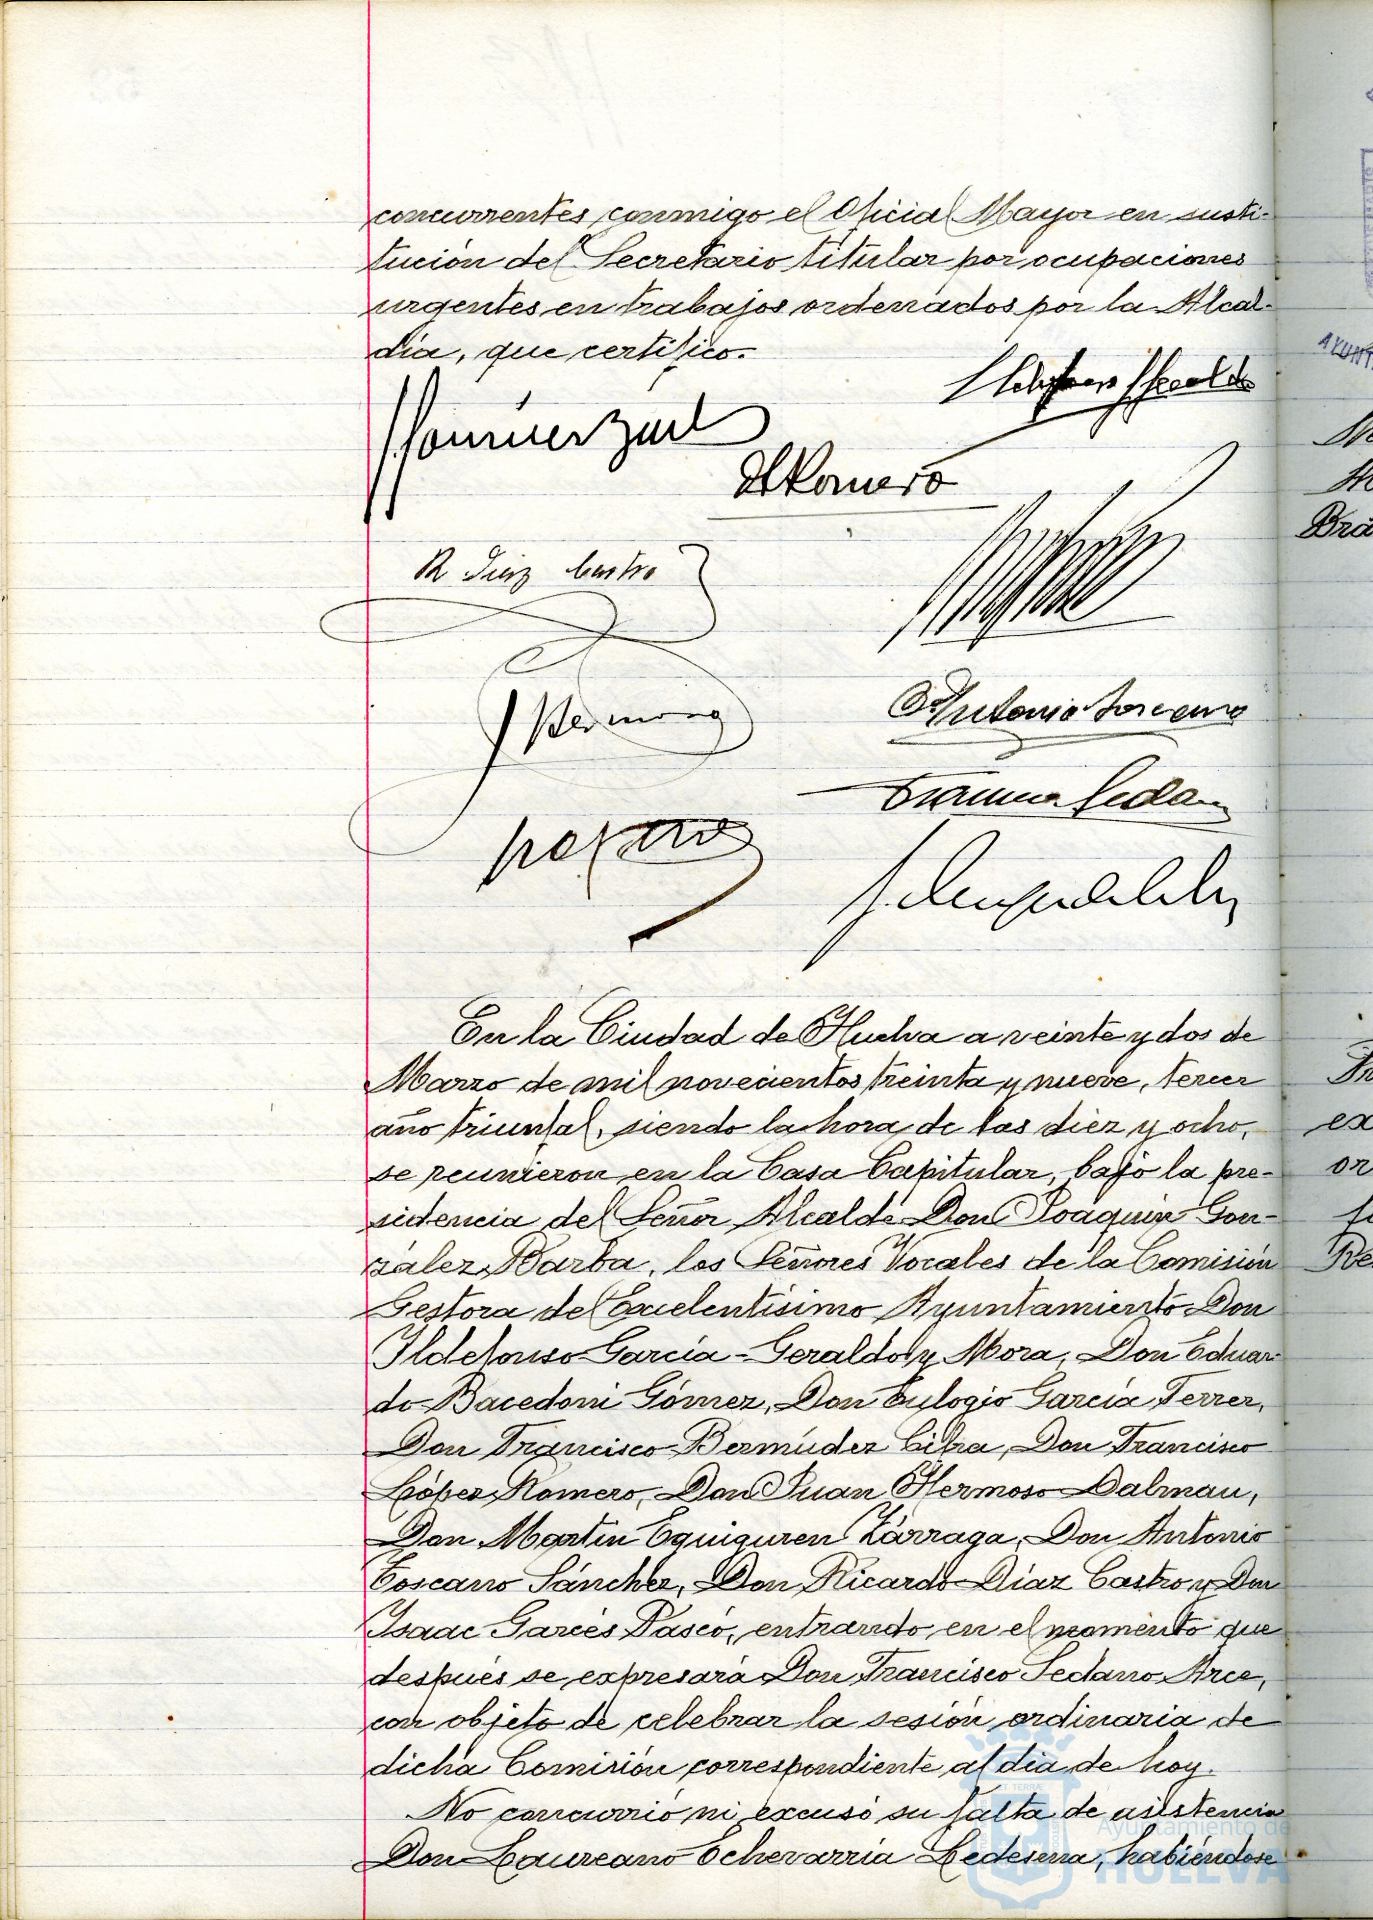 concurrentes, conmigo el Oficial Mayor en susti-
tución del Secretario titular por ocupaciones
urgentes en trabajos ordenados por la Alcal-
día, que certifico.
R Díaz Castro
Antonio Toscano
En la Ciudad de Huelva a veinte y dos de
Marzo de mil novecientos treinta y nueve, tercer
año triunfal, siendo la hora de las diez y ocho,
se reunieron en la Casa Capitular, bajo la pre-
sidencia del Señor Alcalde Don Joaquín Gon-
zález Barba, los Señores Vocales de la Comisión
Gestora del Excelentísimo Ayuntamiento Don
Ildefonso García-Geraldo y Mora, Don Eduar-
do Bacedoni Gómez, Don Eulogio García Ferrer,
Don Francisco Bermúdez Cibra, Don Francisco
López Romero, Don Juan Hermoso Dalmau,
Don Martín Eguiguren Zárraga, Don Antonio
Toscano Sánchez, Don Ricardo Díaz Castro y Don
Isaac Garcés Pascó, entrando en el momento que
después se expresará Don Francisco Sedano Arce,
con objeto de celebrar la sesión ordinaria de
dicha Comisión correspondiente al día de hoy.
No concurrió ni excusó su falta de asistencia
Don Laureano Echevarría Ledesma, habiéndose
Ayuntamiento de
HUELVA